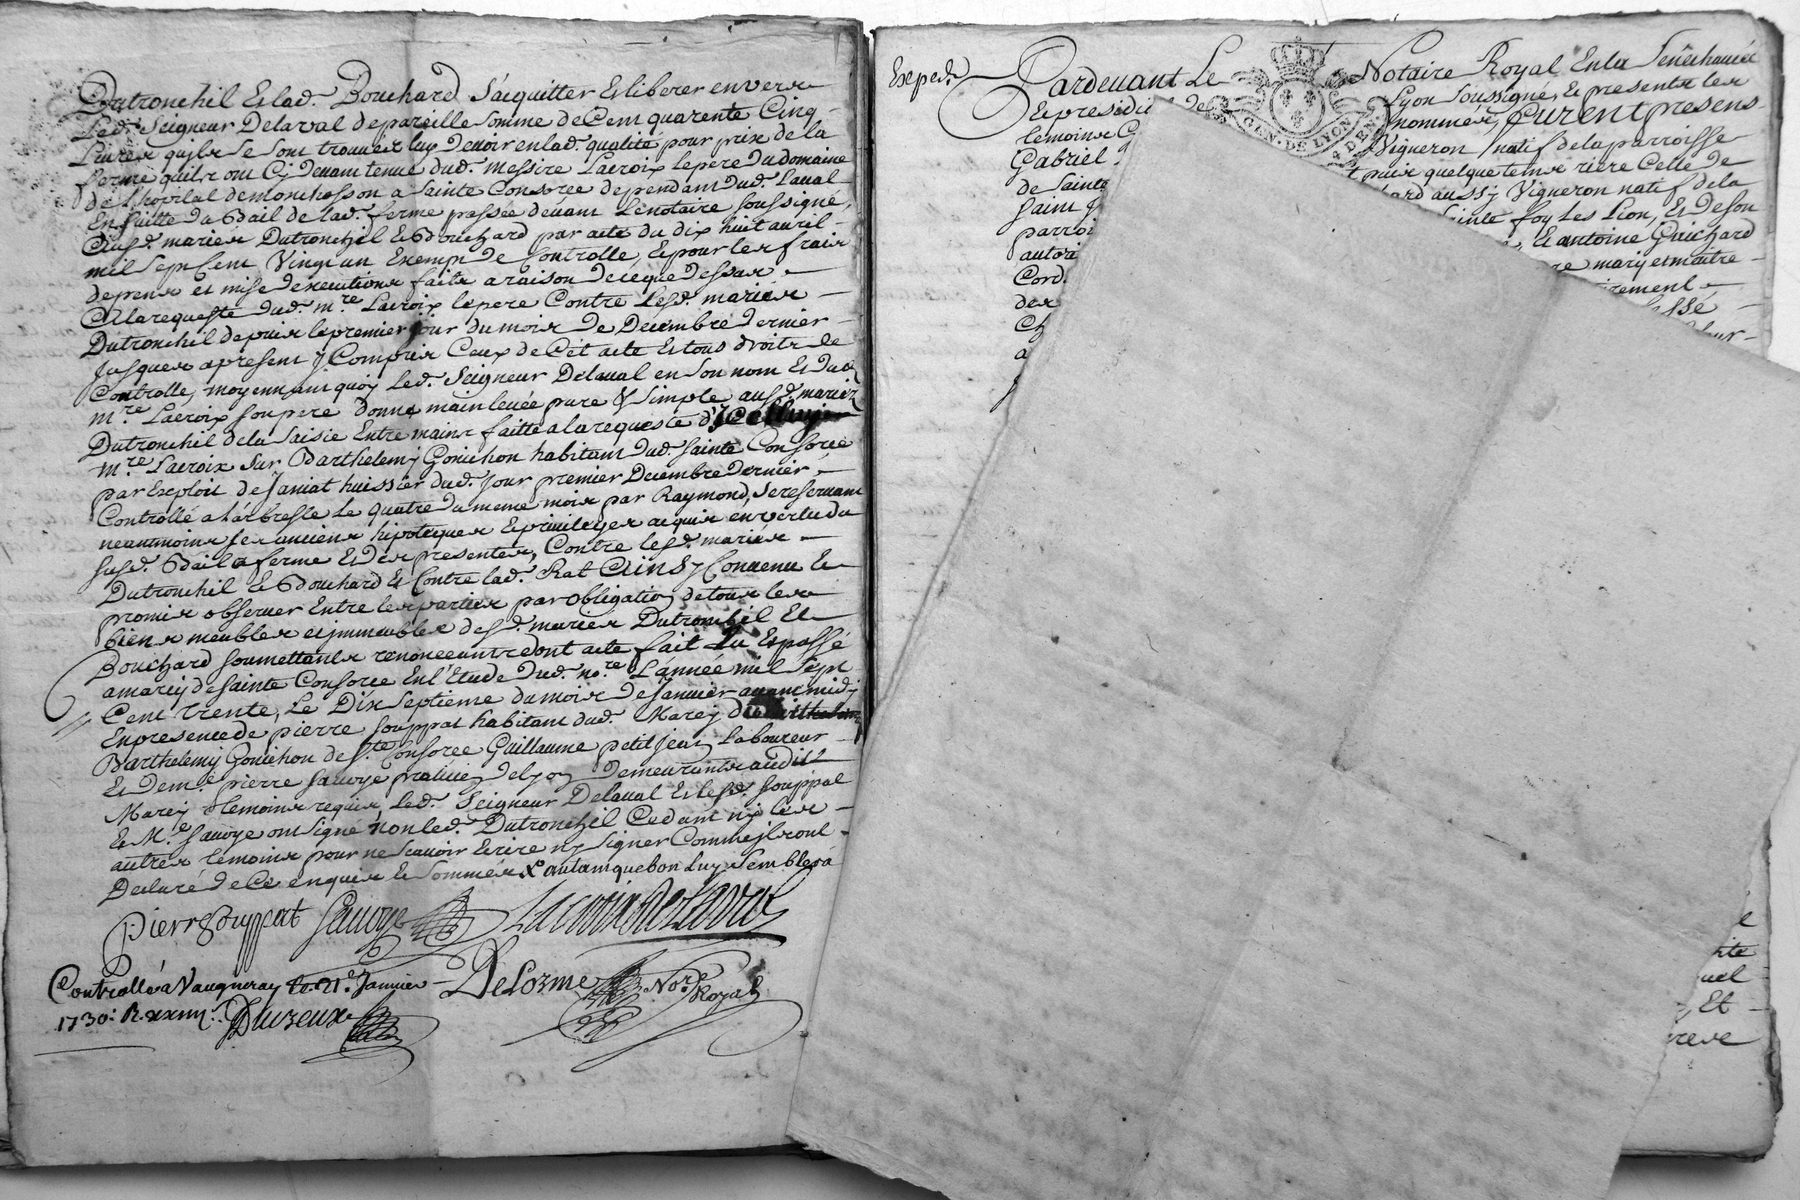 Dutronchil Et lad. Bouchard S'acquitter Et liberer envers
Led. Seigneur Delaval de pareille somme de Cent quarente Cinq
Livres qu'ils se sont trouvés luy devoir en lad. qualité pour prix de la
ferme qu'ils ont Cy devant tenue dud. Messire Lacroix le pere du domaine
de L'hopital de à Sainte Consorce dependant dud. Laval
En suitte du Bail de lad. ferme passée devant Le notaire soussigné,
Ausd. mariés Dutronchil & Bouchard par acte du dix huit avril
mil Sept Cent Vingt un Exempt de Controlle, & pour les frais
depens et mise d'executions faits a raison de ce que dessus
A la requeste dud. m.re Lacroix le pere Contre lesd. mariés
Dutronchil depuis le premier jour du mois de Decembre dernier
Jusques a present y Compris Ceux de Cet acte Et tous droits de
Controlle, moyennant quoy Led. Seigneur Delaval en son nom Et dud.
m.re Lacroix son pere donne mainlevée pure & simple ausd. mariez
Dutronchil de la saisie Entre mains faitte a la requeste d'
m.re Lacroix Sur Barthelemy Gonichon habitant dud. Sainte Consorce
par Exploit de Janiat huissier dud. Jour premier Decembre Dernier
Controllé a L'arbresle Le quatre du meme mois par Raymond, se reservant
neantmoins ses anciens hipoteques & privileges acquis en vertu du
susd. Bail a ferme Et des presentes, Contre lesd. mariés
Dutronchil & Bouchard & Contre lad. Rat Ainsy Convenu &
promis observer Entre les parties par obligation de tous les
biens meubles et immeubles desd. mariés Dutronchil Et
Bouchard soumettants renonceants dont acte fait Lu Et passé
a marcy de Sainte Consorce En l'Etude dud. no.re L'année mil Sept
Cent Trente, Le Dix Septieme du mois de Janvier avant midy
En presence de pierre Souppat habitant dud. Marcy
Barthelemy Gonichon de S.te Consorce Guillaume petit Jean Laboureur
Et de m.e pierre Savoye praticien de Lyon Demeurants audit
Marcy temoins requis, Led. Seigneur Delaval Et lesd. Souppat
& M.e Savoye ont signé non led. Dutronchil Cedant ny les
autres temoins pour ne Scavoir Ecrire ny Signer Comme ils ont
Declaré de Ce enquis & Sommés X autant que bon luy Semblera
Pierre Souppat Savoye Lacroix de Laval
Controllé a Vaugneray le 21e Janvier DeLorme No.re Royal
1730: R. Dureux
Exped.
Pardevant Le Notaire Royal En la Senechaucée
& presidi de Lyon soussigné, & presents les
temoins nommés, furent presens
Gabriel Vigneron natif de la parroisse
de Sainte puis quelque tems riere Celle de
Saint aussy Vigneron natif de la
parroi Sainte foy Les Lion, & de son
autori & antoine Guichard
Cord. mary et maitre
des
GEN. DE LYON
4 DEN
Et